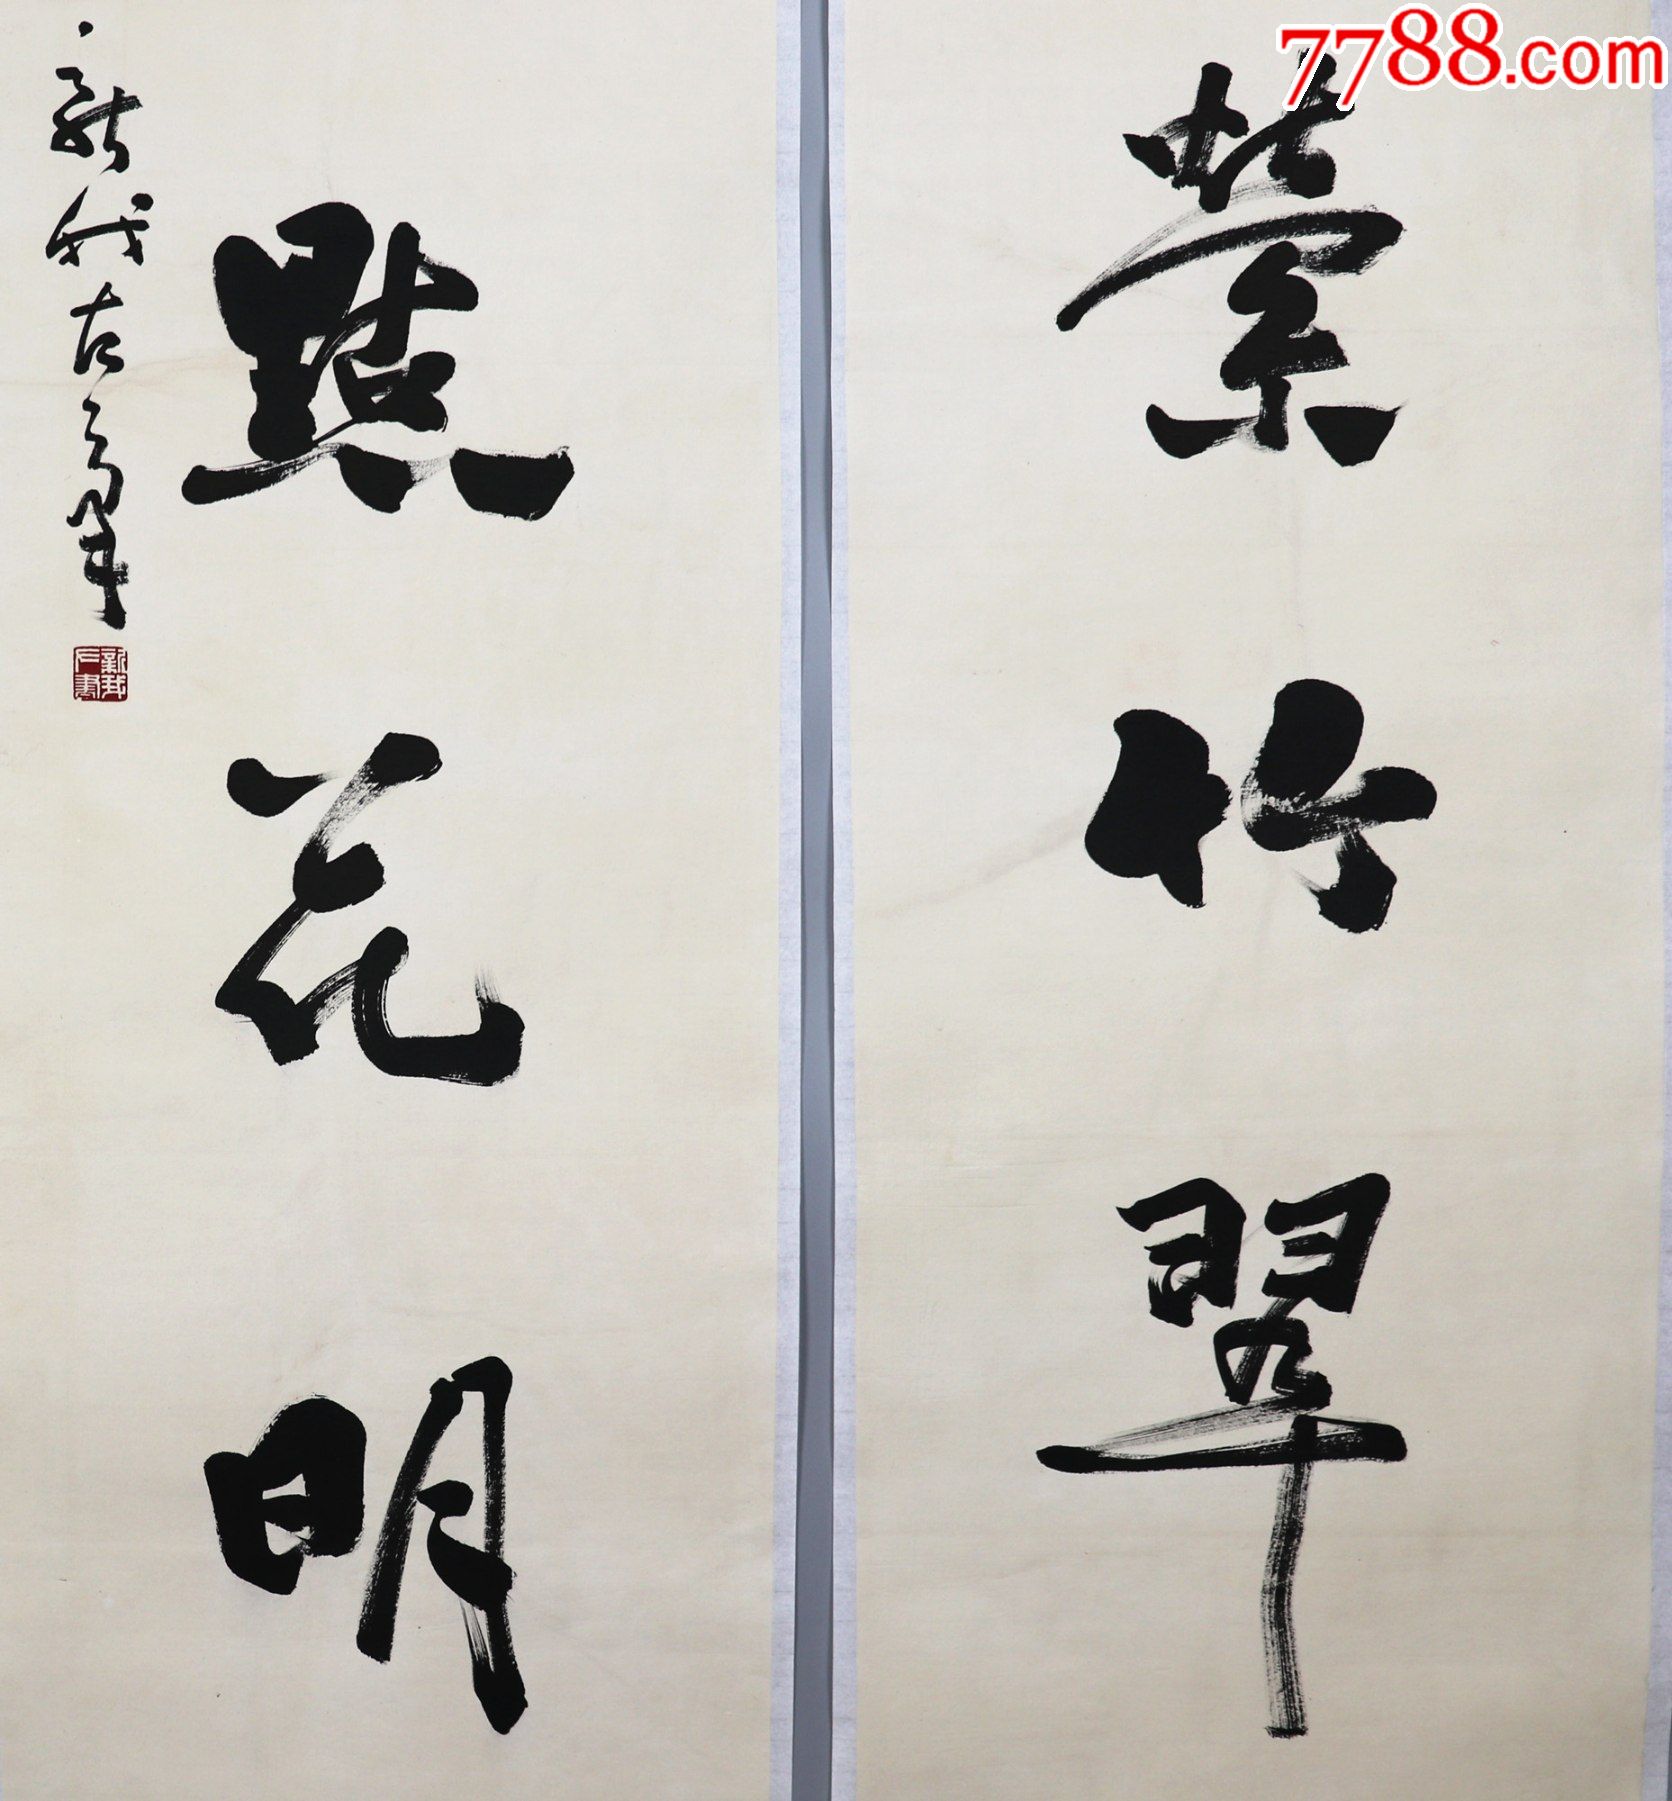 7788.com
縈竹翠
點花明
新我左
新我左書